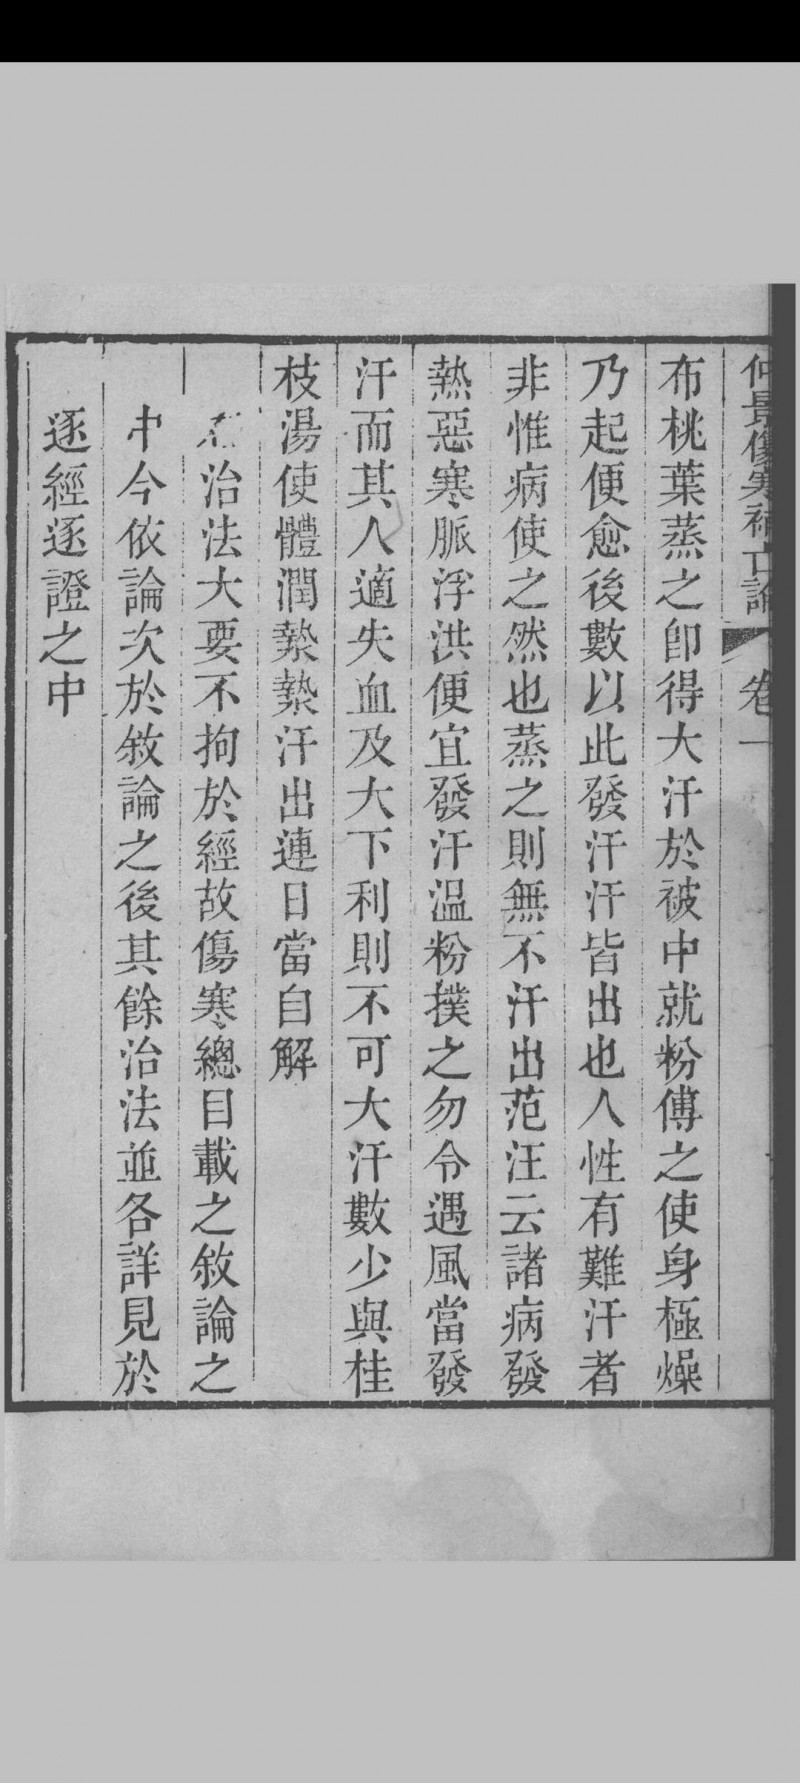 仲景傷寒補亡論 卷一
布桃葉蒸之卽得大汗於被中就粉傅之使身極燥
乃起便愈後數以此發汗汗皆出也人性有難汗者
非惟病使之然也蒸之則無不汗出范汪云諸病發
熱惡寒脈浮洪便宜發汗溫粉撲之勿令遇風當發
汗而其人適失血及大下利則不可大汗數少與桂
枝湯使體潤漐漐汗出連日當自解
右治法大要不拘於經故傷寒總目載之敘論之
中今依論次於敘論之後其餘治法並各詳見於
逐經逐證之中